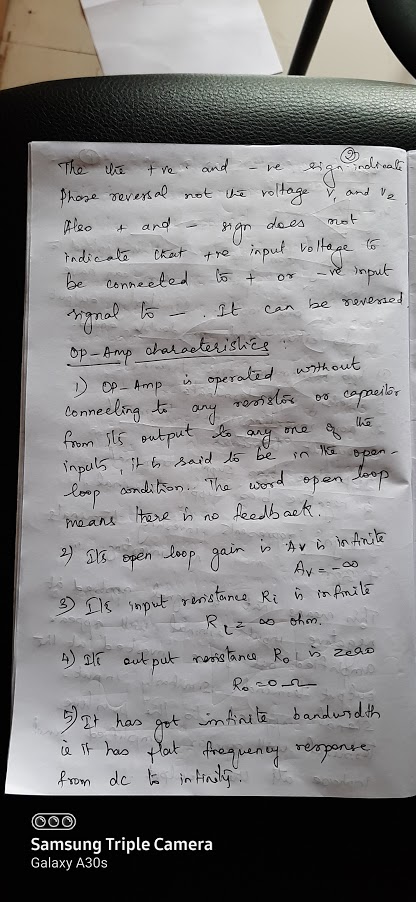 ②
The the +ve and - ve sign indicate
Phase reversal not the voltage V1 and V2
Also + and - sign does not
indicate that +ve input voltage to
be connected to + or -ve input
signal to - . It can be reversed
Op-Amp characteristics :
1) OP-Amp is operated without
connecting to any resistor or capacitor
from its output to any one of the
inputs, it is said to be in the open-
loop condition. The word open loop
means there is no feedback.
2) Its open loop gain is Av is infinite
Av = -∞
3) Its input resistance Ri is infinite
Ri = ∞ ohm.
4) Its output resistance Ro is zero
Ro = 0 Ω
5) It has got infinite bandwidth
ie it has flat frequency response
from dc to infinity.
Samsung Triple Camera
Galaxy A30s